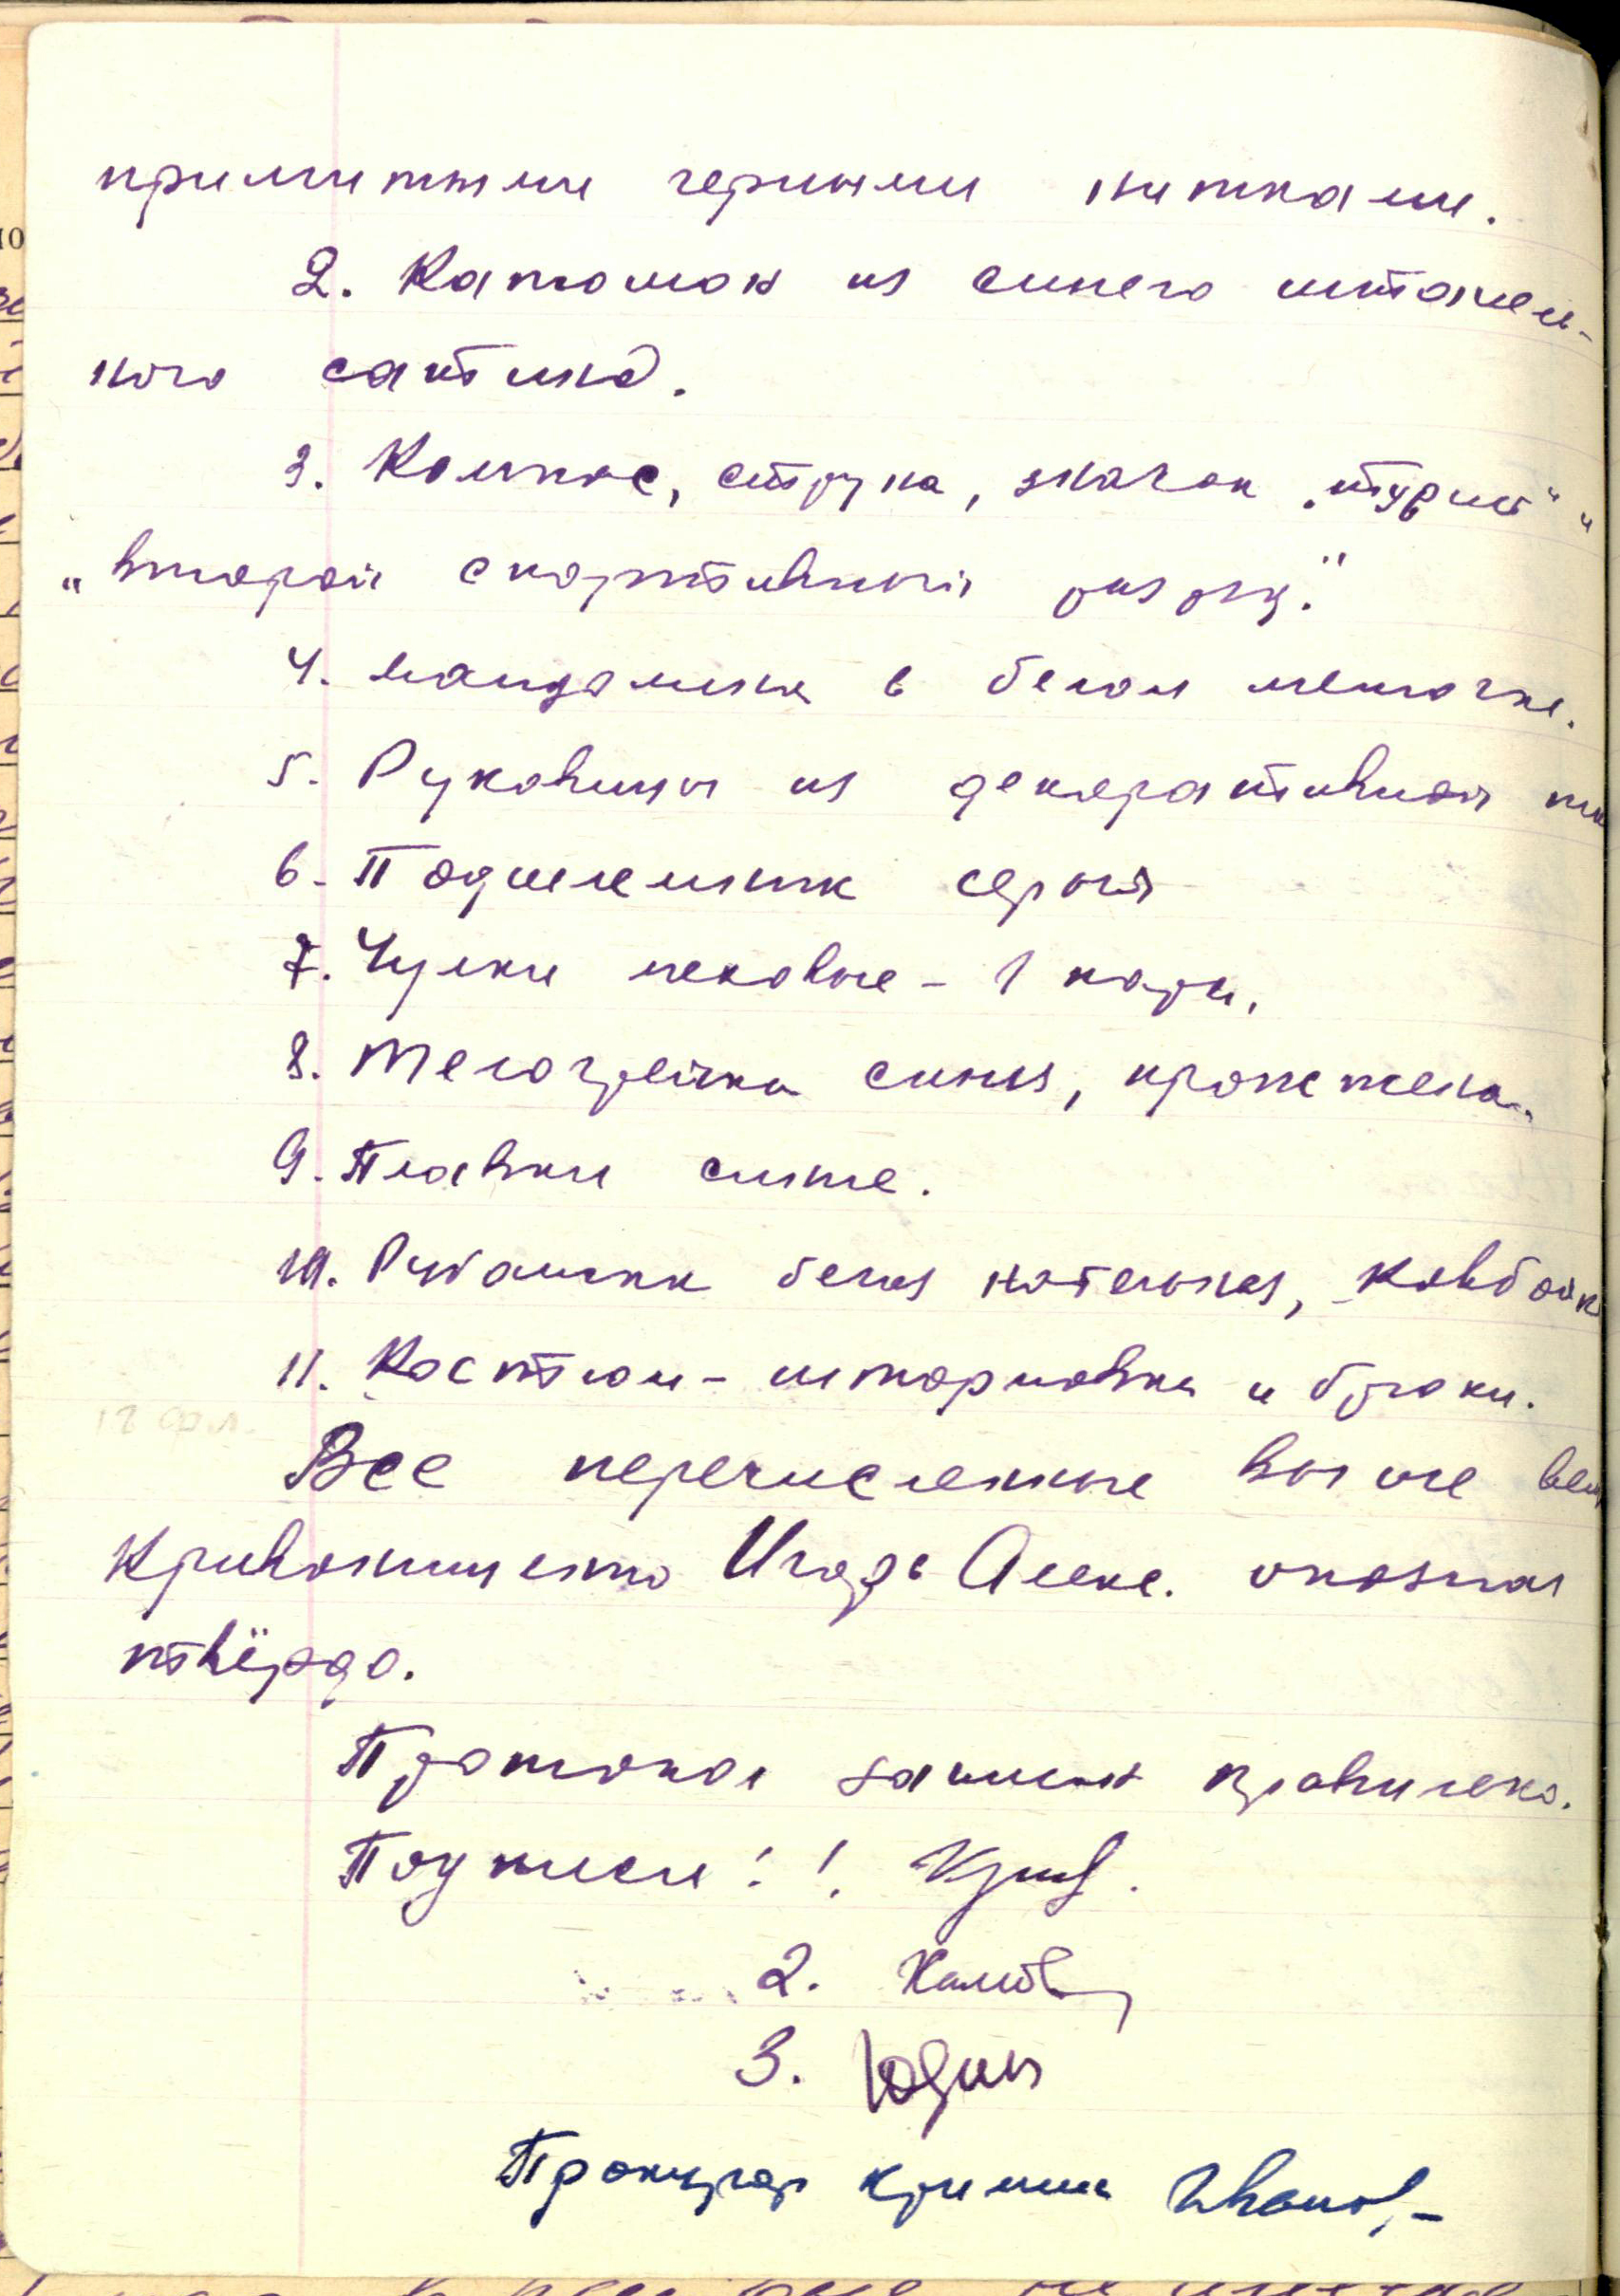 пришитыми черными нитками.
2. Капюшон из синего штапель-
ного сатина.
3. Компас, струна, значок „турист" и
„второй спортивный разряд."
4. Мандолина в белом мешочке.
5. Рукавицы из декоративной тк
6. Подшлемник серый
7. Чулки меховые - 1 пара.
8. Телогрейка синяя, прожжена.
9. Плавки синие.
10. Рубашка белая нательная, ковбойк
11. Костюм - штормовка и брюки.
Все перечисленные выше вещ
Кривонищенко Игорь Алекс. опознал
твёрдо.
Протокол записан правильно.
Подписи: 1. Крив.
2.
3. Юдин
Прокурор кримин Иванов